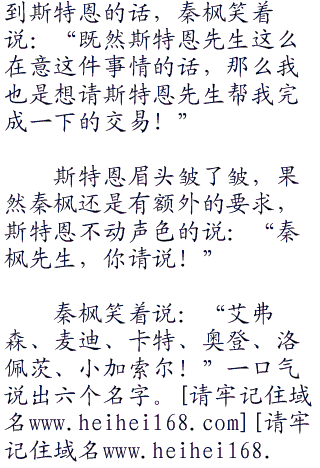 到斯特恩的话，秦枫笑着
说：“既然斯特恩先生这么
在意这件事情的话，那么我
也是想请斯特恩先生帮我完
成一下的交易！”
斯特恩眉头皱了皱，果
然秦枫还是有额外的要求，
斯特恩不动声色的说：“秦
枫先生，你请说！”
秦枫笑着说：“艾弗
森、麦迪、卡特、奥登、洛
佩茨、小加索尔！”一口气
说出六个名字。[请牢记住域
名www.heihei168.com][请牢
记住域名www.heihei168.